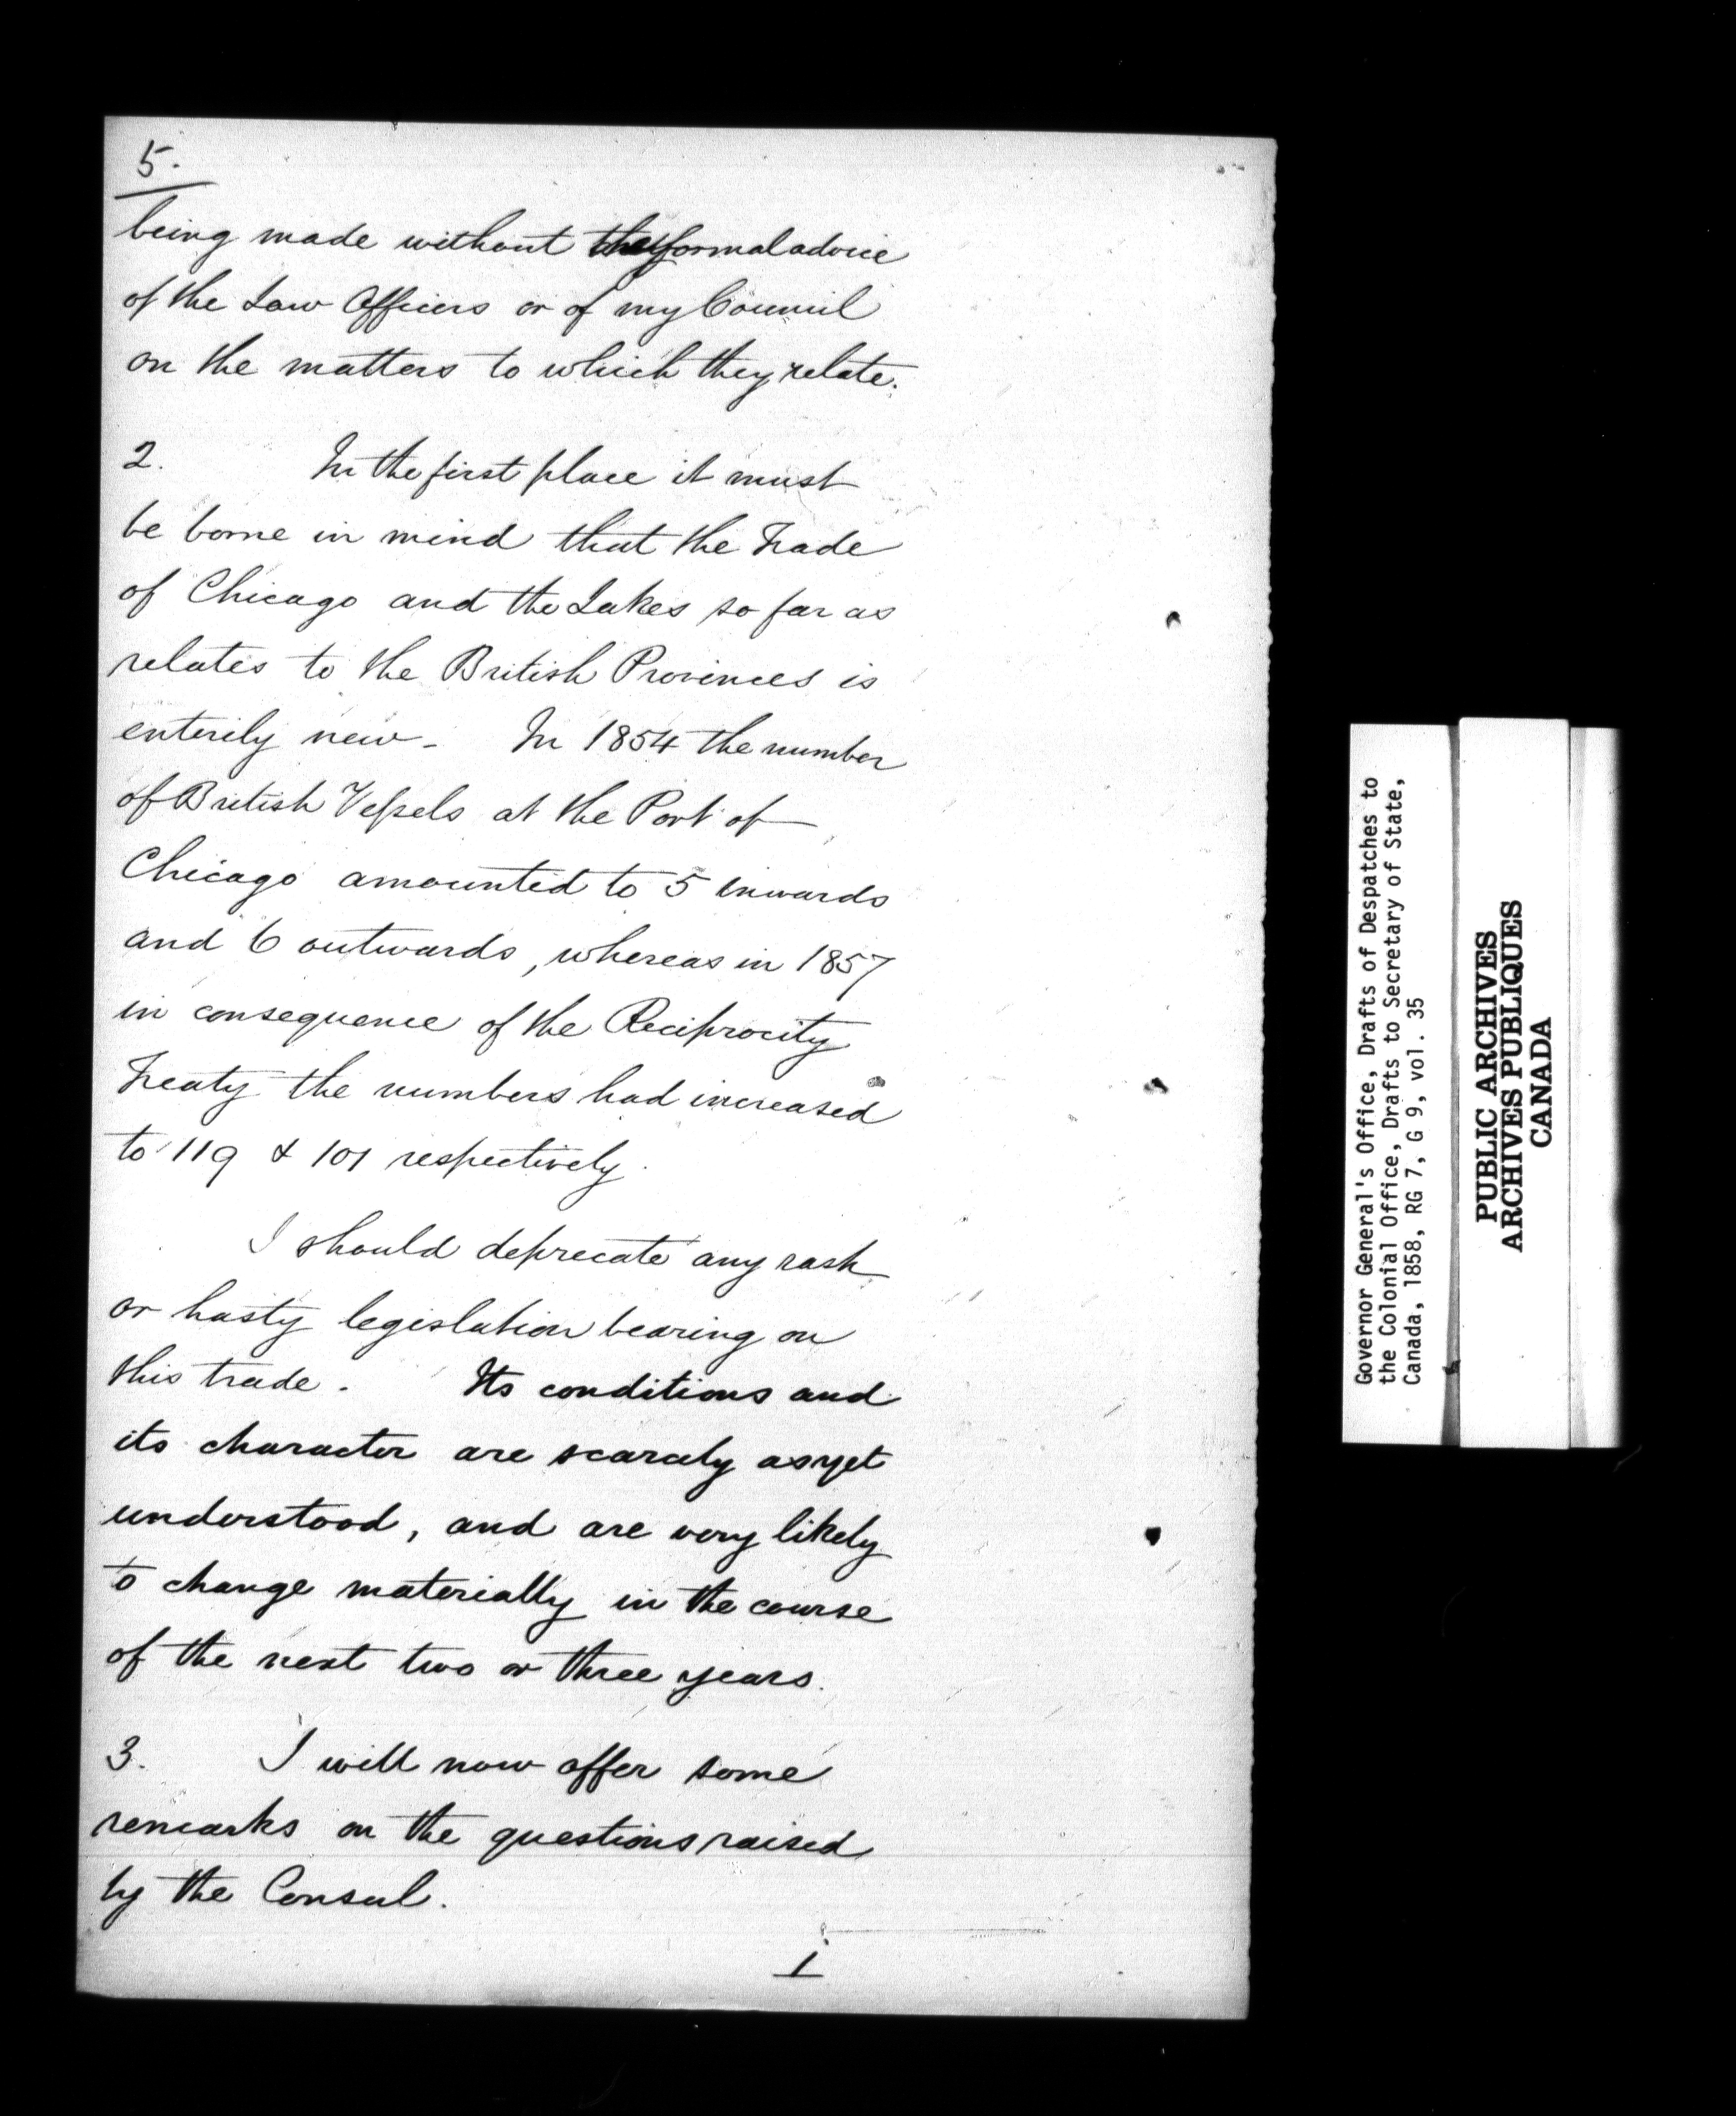 5.
being made without the formal advice
of the Law Officers or of my Council
on the matters to which they relate.
2. In the first place it must
be borne in mind that the Trade
of Chicago and the Lakes so far as
relates to the British Provinces is
enterily new - In 1854 the number
of British Vessels at the Port of
Chicago amounted to 5 inwards
and 6 outwards, whereas in 1857
in consequence of the Reciprocity
Treaty the numbers had increased
to 119 & 101 respectively.
I should deprecate any rash
or hasty legislation bearing on
this trade. Its conditions and
its character are scarcely as yet
understood, and are very likely
to change materially in the course
of the next two or three years.
3. I will now offer some
remarks on the questions raised
by the Consul.
1
Governor General's Office, Drafts of Despatches to
the Colonial Office, Drafts to Secretary of State,
Canada, 1858, RG 7, G 9, vol. 35
PUBLIC ARCHIVES
ARCHIVES PUBLIQUES
CANADA